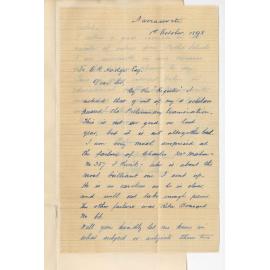 Naracoorte
1st October, 1898
To C. R. Hodge Esq.
Dear Sir,
By the Register I
noticed that 4 out of my 6 scholars
passed the Preliminary Examination.
This is not so good as last
year, but it is not altogether bad.
I am very much surprised at
the failure of Charles
No 357, I think, who is about the
most brilliant one I sent up.
He is as careless as he is clever
and will not take enough pains
the other failure was
No 66.
Will you kindly let me know in
what subject or subjects these two